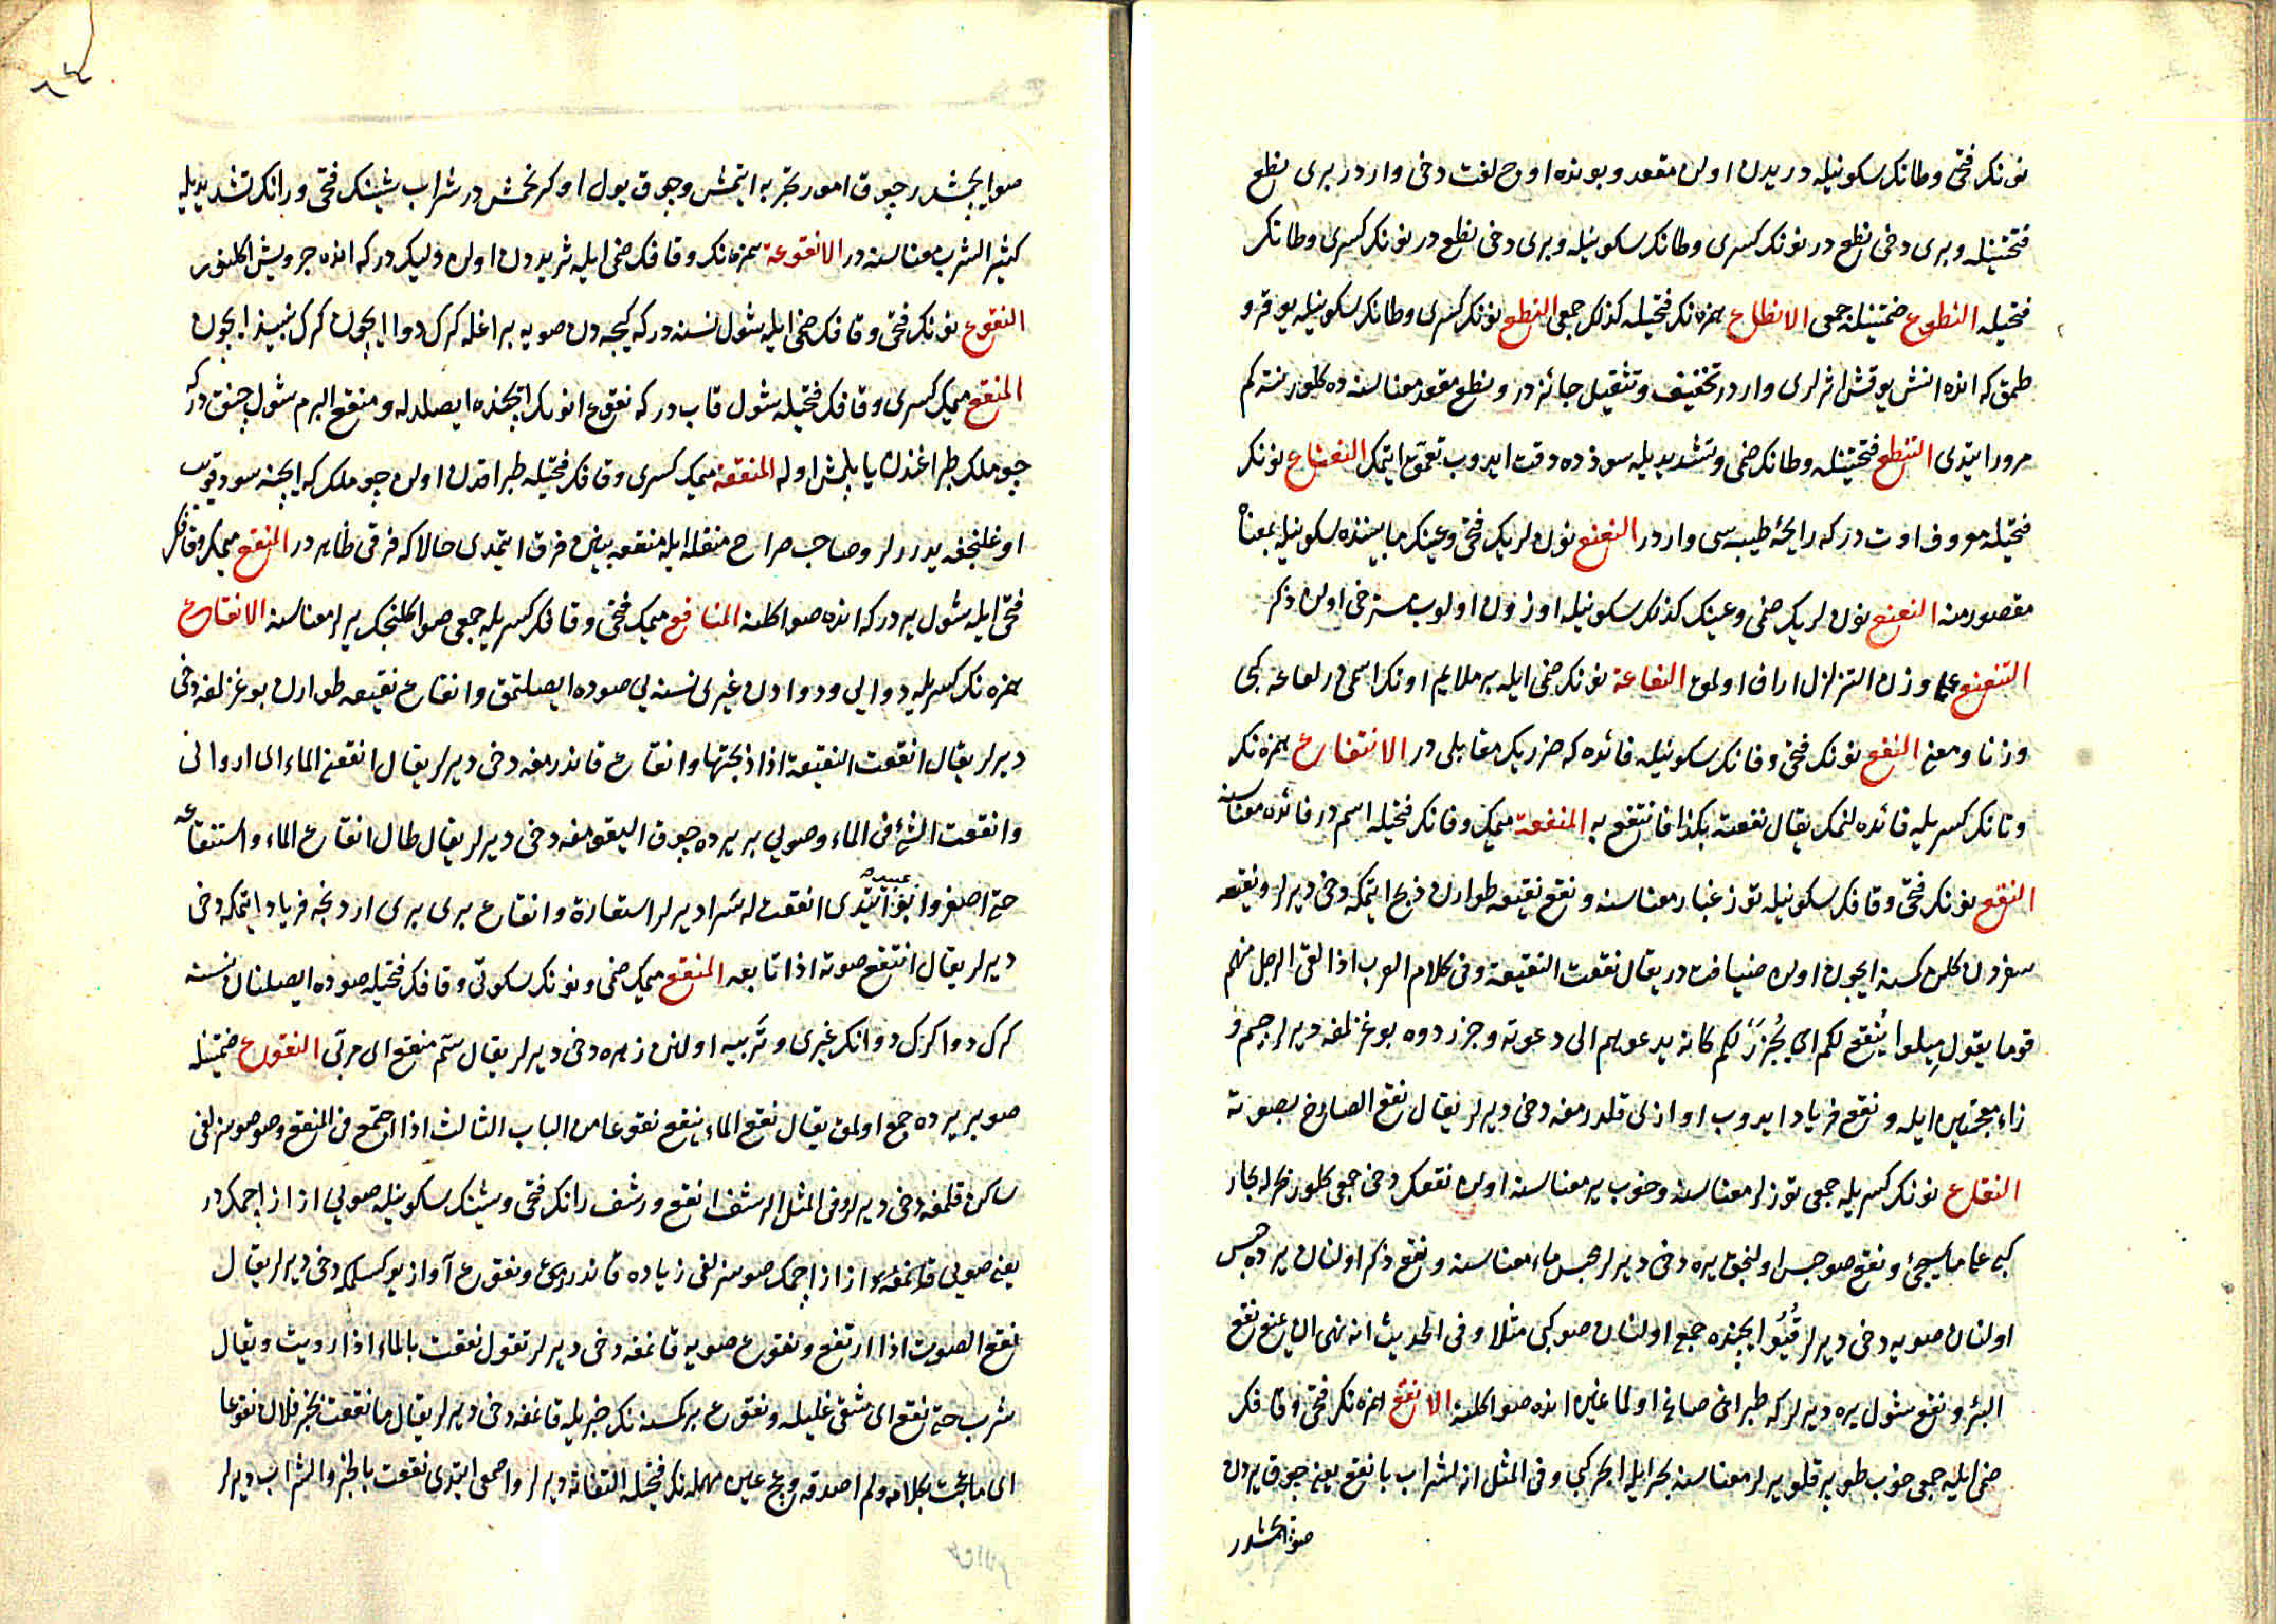 نونك فتحى وطانك سكونيله دريدن اولن مقعد وبونده اوچ لغت دخى واردر برى نطع
فتحتينله وبرى دخى نطع در نونك كسرى وطانك سكونيله وبرى دخى نطع در نونك كسرى وطانك
فتحيله النطوع ضمتينله جمعى الانطاع همزه نك فتحيله كذلك جمعى النطع نونك كسرى وطانك سكونيله يوقرو
طمق كه انده انش يوقش اثرلرى واردر تخفيف وتثقيل جائزدر ونطع مقعد معناسنه ده كلور نته كم
مرور ايتدى التنطع فتحتينله وطانك ضمى وتشديديله سوزده دقت ايدوب تعمق ايتمك النعناع نونك
فتحيله معروف اوت در كه رايحۀ طيبه سى واردر النعنع نونلريك فتحى وعينك مابيننده سكونيله بمعناه
مقصور منه النعنع نونلريك ضمى وعينك كذلك سكونيله اوزون اولوب سترخى اولن ذكر
التنعنع على وزن التزلزل اراق اولمق النعاعة نونك ضمى ايله بر ملايم اونك اسمى در لعاعه كبى
وزنا ومعنى النفع نونك فتحى وفانك سكونيله فائده كه ضرريك مقابلى در الانتفاع همزه نك
وتانك كسريله فائده لنمك يقال نفعته بكذا فانتفع به المنفعة ميمك وفانك فتحيله اسم در فائده معناسنه
النقع نونك فتحى وقافك سكونيله توز غبار معناسنه ونقع نقيعه طوارن ذبح ايتمكه دخى ديرلر ونقيعه
سفردن كلن كمسنه ايچون اولن ضيافت در يقال نقعت النقيعة وفى كلام العرب اذا لقى الرجل منهم
قوما يقول ميلوا يُنْقَع لكم اى يُجْزَرْ لكم كانه يدعوهم الى دعوته وجزر دوه بوغزلمغه ديرلر جيم و
زاء معجمتين ايله ونقع فرياد ايدوب اوازنى قلدرمغه دخى ديرلر يقال نقع الصارخ بصوته
النقاع نونك كسريله جمعى توزلر معناسنه وخوب ير معناسنه اولن نقعك دخى جمعى كلور بحر له بحار
كبى على ما سيجئ ونقع صو حبس اولنجق يره دخى ديرلر محبس ماء معناسنه ونقع ذكر اولنان يرده حبس
اولنان صويه دخى ديرلر قُيُو ايچنده جمع اولنان صو كبى مثلا وفى الحديث انه نهى ان يمنع نقع
البئر ونقع شول يره ديرلر كه طپراغى صاغ اولا غيره انده صو اكلنه الانقع همزه نك فتحى وقافك
ضمى ايله جمعى خوب طوپر قلو يرلر معناسنه بحر ايله ابحر كبى وفى المثل انه لشراب بانقع يعنى چوق يردن
صو ايچمشدر
صو ايچمشدر چوق امور تجربه ايتمش وچوق يول اوكرنمش در شراب شينك فتحى ورانك تشديديله
كثير الشرب معناسنه در الانقوعة همزه نك وقافك ضمى ايله ثريددن اولن وليك در كه انده چرويش اكلنور
النقوع نونك فتحى وقافك ضمى ايله شول نسنه در كه كيجه دن صويه براغله كرك دوا ايچون كرك نبيذ ايچون
المنقع ميمك كسرى وقافك فتحيله شول قاب در كه نقوع انوك ايچنده ايصلدله ومنقع البرم شول چنق در كه
چوملك طپراغندن ياپلمش اوله المنقعة ميمك كسرى وقافك فتحيله طپراقدن اولن چوملك كه ايچنه سود قويب
اوغلنجغه يدررلر وصاحب صراح منقله ايله منقعه بينن فرق ايتمدى حالا كه فرقى ظاهر در المنقع ميمك وقافك
فتحى ايله شول ير در كه انده صو اكلنه المناقع ميمك فتحى وقافك كسريله جمعى صو اكلنجك يرلر معناسنه الانقاع
همزه نك كسريله دوايى ودوادن غيرى نسنه يى صوده ايصلتمق وانقاع نقيعه طوارن بوغزلمغه دخى
ديرلر يقال انقعت النقيعة اذا ذبحتها وانقاع قاندرمغه دخى ديرلر يقال انقعنى الماء اى اروانى
وانقعت الشئ فى الماء وصويى بر يرده چوق اليقومغه دخى ديرلر يقال طال انقاع الماء واستنقاعه
حتى اصفر وابو عبيده ايتدى انقعت له شرا ديرلر استعارة وانقاع برى برى اردنجه فرياد ايتمكه دخى
ديرلر يقال انتقع صوته اذا تابعه المنقع ميمك ضمى ونونك سكونى وقافك فتحيله صوده ايصلنان نسنه
كرك دوا كرك دوانك غيرى وتربيه اولنن زهره دخى ديرلر يقال سم منقع اى مربى النقوع ضمتينله
صو بر يرده جمع اولمق يقال نقع الماء ينقع نقوعا من الباب الثالث اذا اجتمع فى المنقع وصو صوسزلغى
ساكن قلمغه دخى ديرلر وفى المثل الرشف انقع ورشف رانك فتحى وشينك سكونيله صويى از از ايچمكدر
يعنى صويى از از ايچمك صوسزلغى زياده قاندرر ونقوع آواز يوكسلمكه دخى ديرلر يقال
نقع الصوت اذا ارتفع ونقوع صويه قانمغه دخى ديرلر تقول نقعت بالماء اذا رويت ويقال
شرب حتى نقع اى شفى غليله ونقوع بر كمسنه نك خبريله قانمغه دخى ديرلر يقال ما نقعت بخبر فلان نقوعا
اى ما عجت بكلامه ولم اصدقه وعج عين مهمله نك فتحيله التفاته ديرلر واصمعى ايتدى نقعت بالخبر والشراب ديرلر